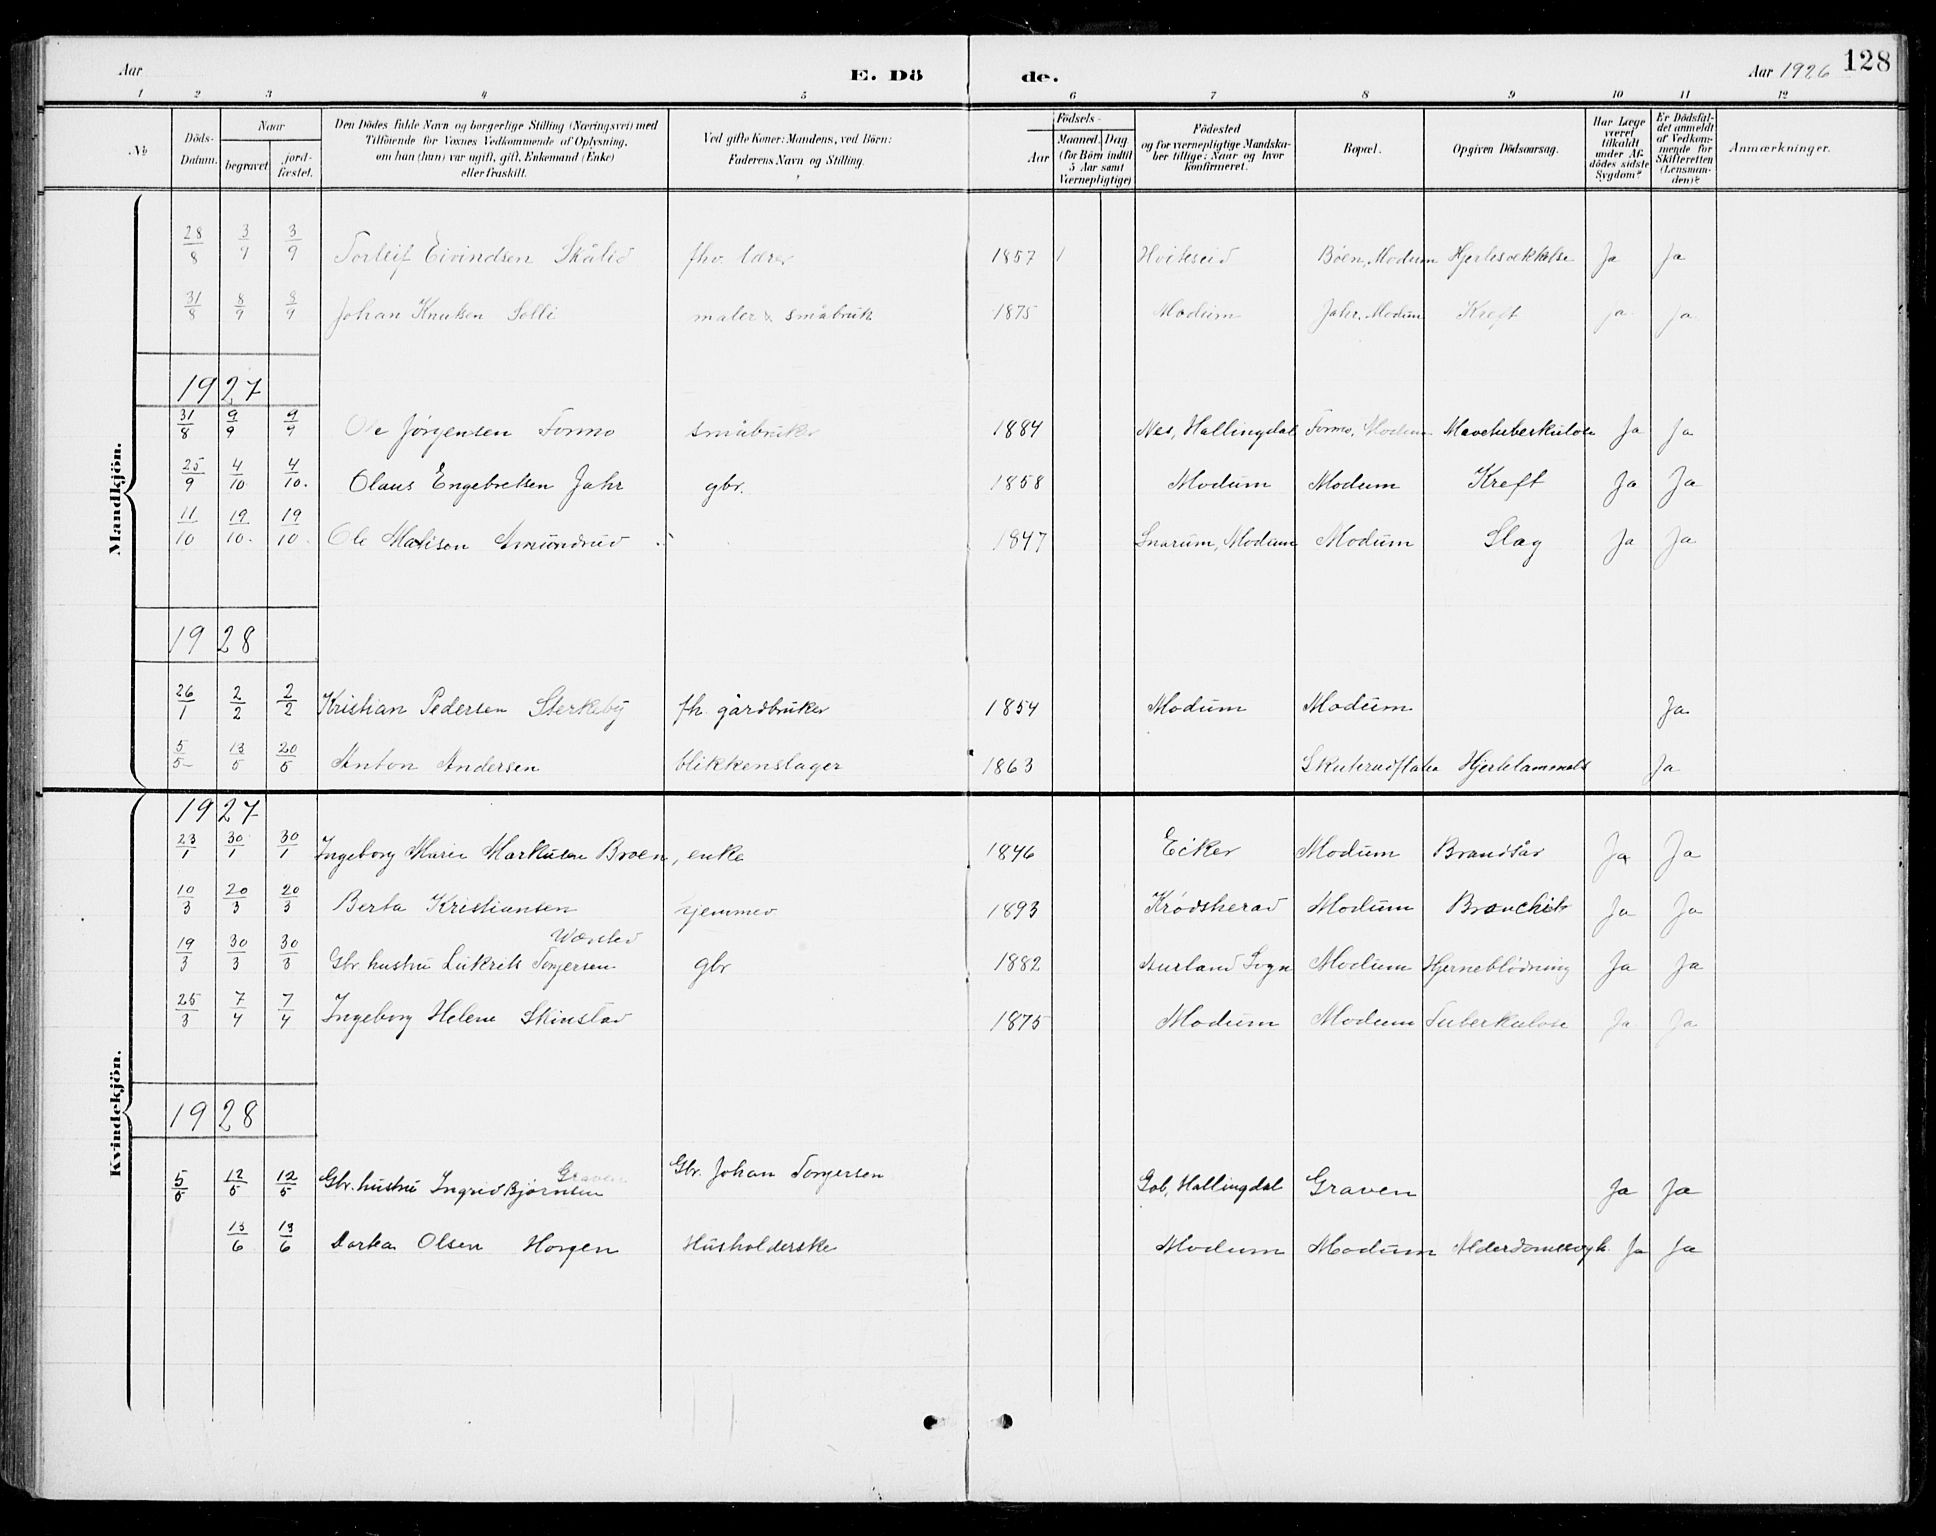 128
Aar
E. Dö
de.
Aar 1926
1 2 3 4 5 6 7 8 9 10 11 12
№
Döds-Datum.
Naar
begravet
jord-fæstet.
Den Dödes fulde Navn og borgerlige Stilling (Næringsvei) med Tilföiende for Voxnes Vedkommende af Oplysning, om han (hun) var ugift, gift, Enkemand (Enke) eller fraskilt.
Ved gifte Koner: Mandens, ved Börn: Faderens Navn og Stilling.
Födsels-
Aar
Maaned. Dag.
(for Börn indtil 5 Aar samt Værnepligtige)
Födested og for værnepligtige Mandskaber tillige: Naar og hvor konfirmeret.
Bopæl.
Opgiven Dödsaarsag.
Har Læge været tilkaldt under Afdödes sidste Sygdom?
Er Dödsfaldet anmeldt af Vedkommende for Skifteretten (Lensmanden)?
Anmærkninger.
Mandkjön.
28/8 3/9 3/9 Torleif Eivindsen Skålid fhv. lærer 1857 Hviteseid Böen, Modum Hjertesvekkelse Ja Ja
31/8 8/9 8/9 Johan Knutsen Solli maler & småbruk 1875 Modum Jahr, Modum Kreft Ja Ja
1927
31/8 9/9 9/9 Ole Jørgensen Formo småbruker 1884 Nes, Hallingdal Formo, Modum Mavetuberkulose Ja Ja
25/9 4/10 4/10. Olaus Engebretsen Jahr gbr. 1858 Modum Modum Kreft Ja Ja
11/10 19/10. 19/10. Ole Matisen Amundrud 1847 Snarum, Modum Modum Slag Ja Ja
1928
26/1 2/2 2/2 Kristian Pedersen Sterkeby fh. gårdbruker 1854 Modum Modum Ja
5/5 13/5 20/5 Anton Andersen blikkenslager 1863 Skuterudflaten Hjertelammelse Ja
Kvindekjön.
1927
23/1 30/1 30/1 Ingeborg Marie Markusen Broen, enke 1846 Eiker Modum Brandsår Ja Ja
10/3 20/3 20/3 Berta Kristiansen hjemmev 1893 Krødsherad Modum Bronchit Ja Ja
19/3 30/3 30/3 Gbr. hustru Lukrits Torgersen gbr 1882 Aurland Sogn Modum Hjerneblödning Ja Ja
25/3 7/4 7/4 Ingeborg Helene Skinstad 1875 Modum Modum Tuberkulose Ja Ja
1928
5/5 12/5 12/5 Gbr. hustru Ingrid Bjørnsen Graven Gbr. Johan Torgersen Gol, Hallingdal Graven Ja Ja
13/6 13/6 Dorka Olsen Horgen Husholderske Modum Modum Alderdomssvgh. Ja Ja